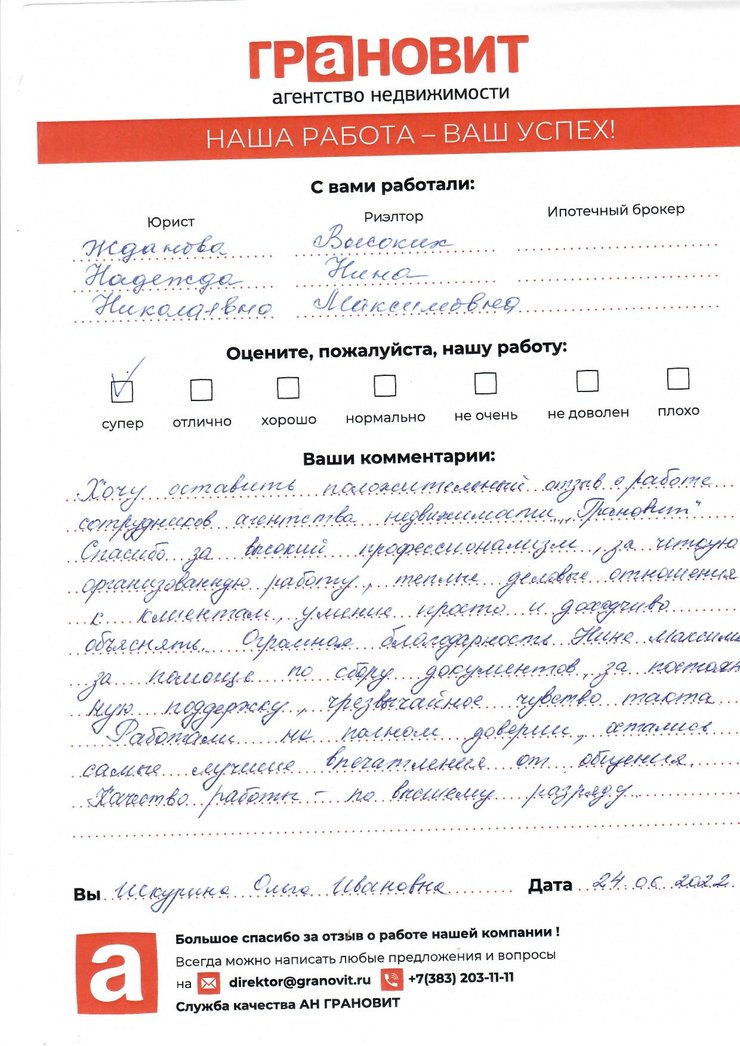 ГРаНОВИТ
агентство недвижимости
НАША РАБОТА – ВАШ УСПЕХ!
С вами работали:
Юрист Риэлтор Ипотечный брокер
Жданова Высоких
Надежда Нина
Николаевна Максимовна
Оцените, пожалуйста, нашу работу:
супер отлично хорошо нормально не очень не доволен плохо
Ваши комментарии:
Хочу оставить положительный отзыв о работе
сотрудников агентства недвижимости "Грановит"
Спасибо за высокий профессионализм, за четкую
организованную работу, теплые деловые отношения
к клиентам, умение просто и доходчиво
объяснять. Огромная благодарность Нине Максим
за помощь по сбору документов, за постоян
ную поддержку, чрезвычайное чувство такта
Работали на полном доверии, остались
самые лучшие впечатления от общения.
Качество работы – по высшему разряду.
Вы Шкурина Ольга Ивановна Дата 24.06.2022
а
Большое спасибо за отзыв о работе нашей компании !
Всегда можно написать любые предложения и вопросы
на direktor@granovit.ru +7(383) 203-11-11
Служба качества АН ГРАНОВИТ